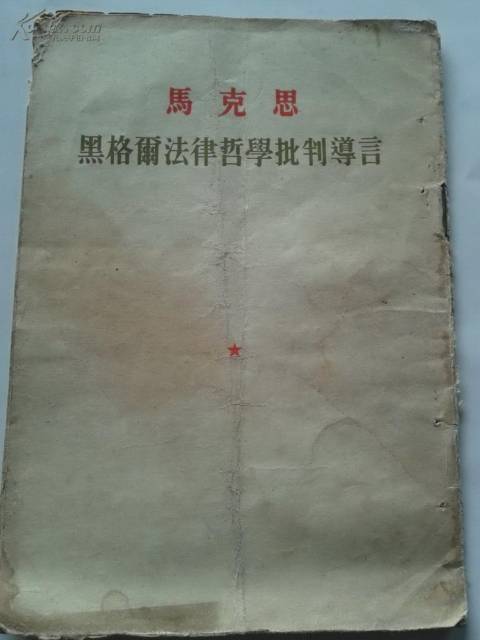 馬克思
黑格爾法律哲學批判導言